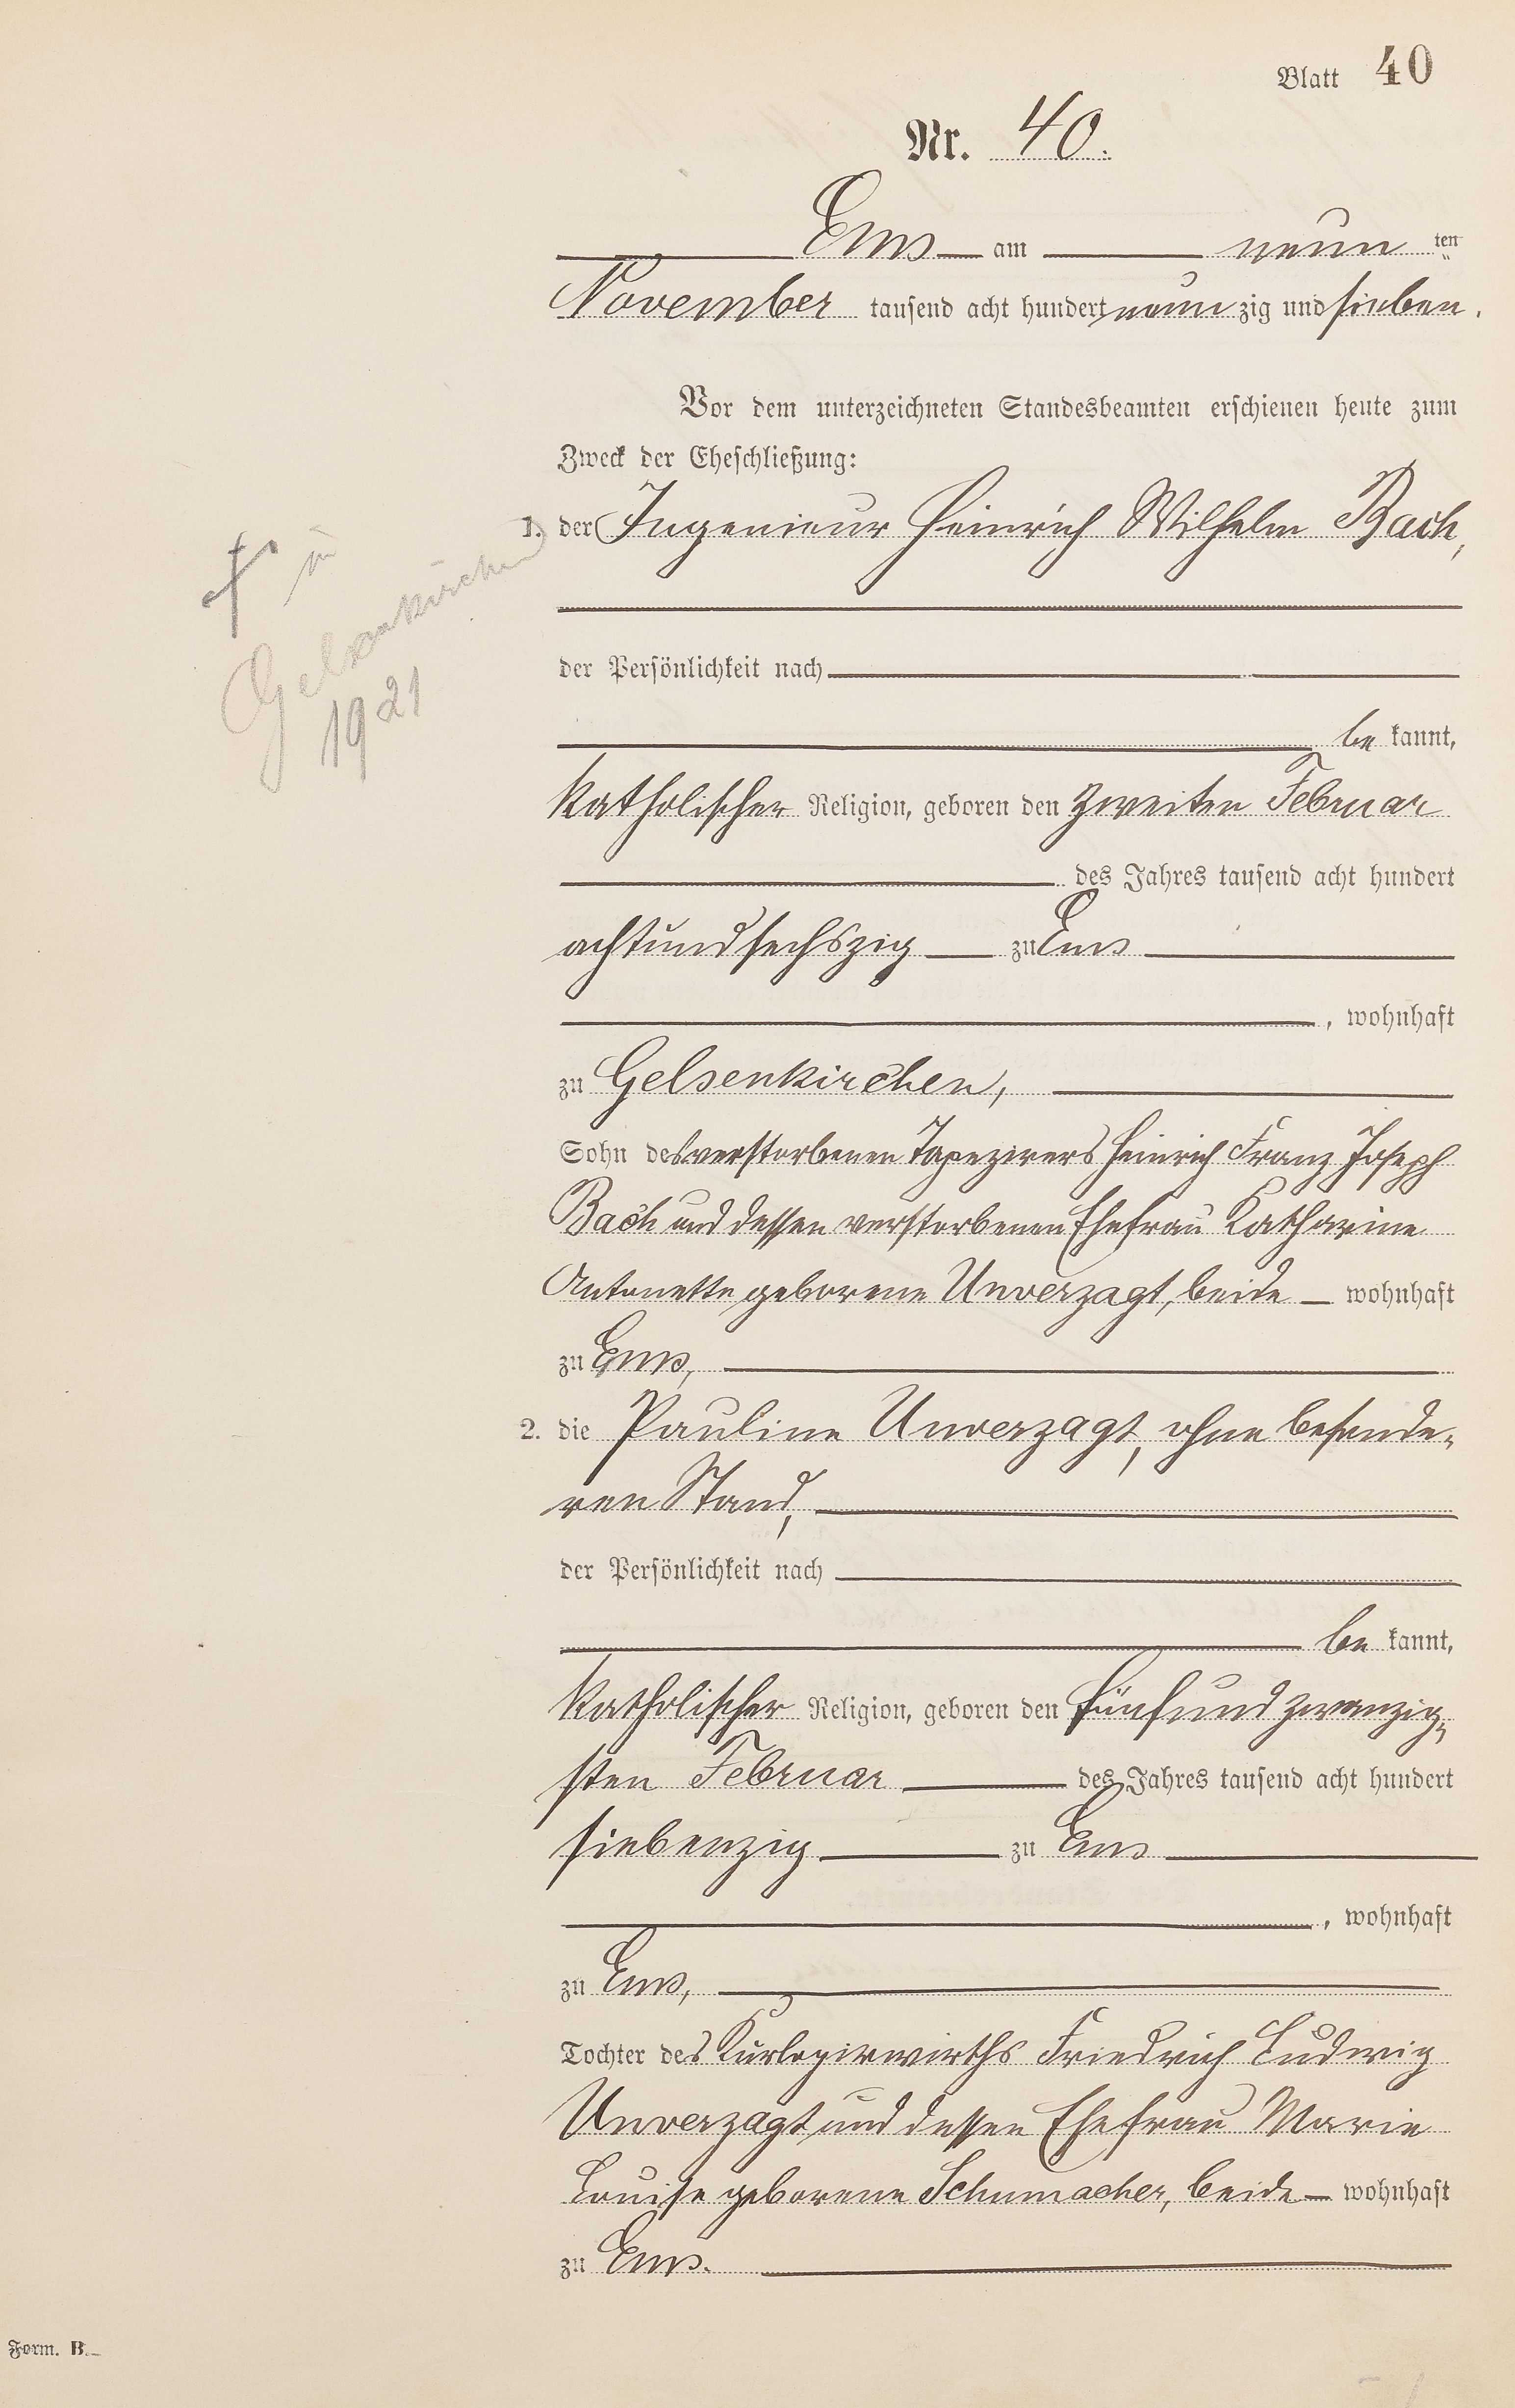 Blatt 40
Nr. 40.
Ems am neun ten
November tausend acht hundert neun zig und sieben.
Vor dem unterzeichneten Standesbeamten erschienen heute zum
Zweck der Eheschließung:
1. der Ingenieur Heinrich Wilhelm Bach,
† in
Gelsenkirchen
1921
der Persönlichkeit nach
be kannt,
katholischer Religion, geboren den zweiten Februar
des Jahres tausend acht hundert
achtundsechszig zu Ems
, wohnhaft
zu Gelsenkirchen,
Sohn des verstorbenen Tapezirers Heinrich Franz Joseph
Bach und dessen verstorbenen Ehefrau Katharine
Antonette geborene Unverzagt, beide wohnhaft
zu Ems,
2. die Pauline Unverzagt, ohne besonde-
ren Stand,
der Persönlichkeit nach
be kannt,
katholischer Religion, geboren den fünfundzwanzig-
sten Februar des Jahres tausend acht hundert
siebenzig zu Ems
, wohnhaft
zu Ems,
Tochter des Kurlogirwirths Friedrich Ludwig
Unverzagt und dessen Ehefrau Marie
Louise geborene Schumacher, beide wohnhaft
zu Ems.
Form. B.